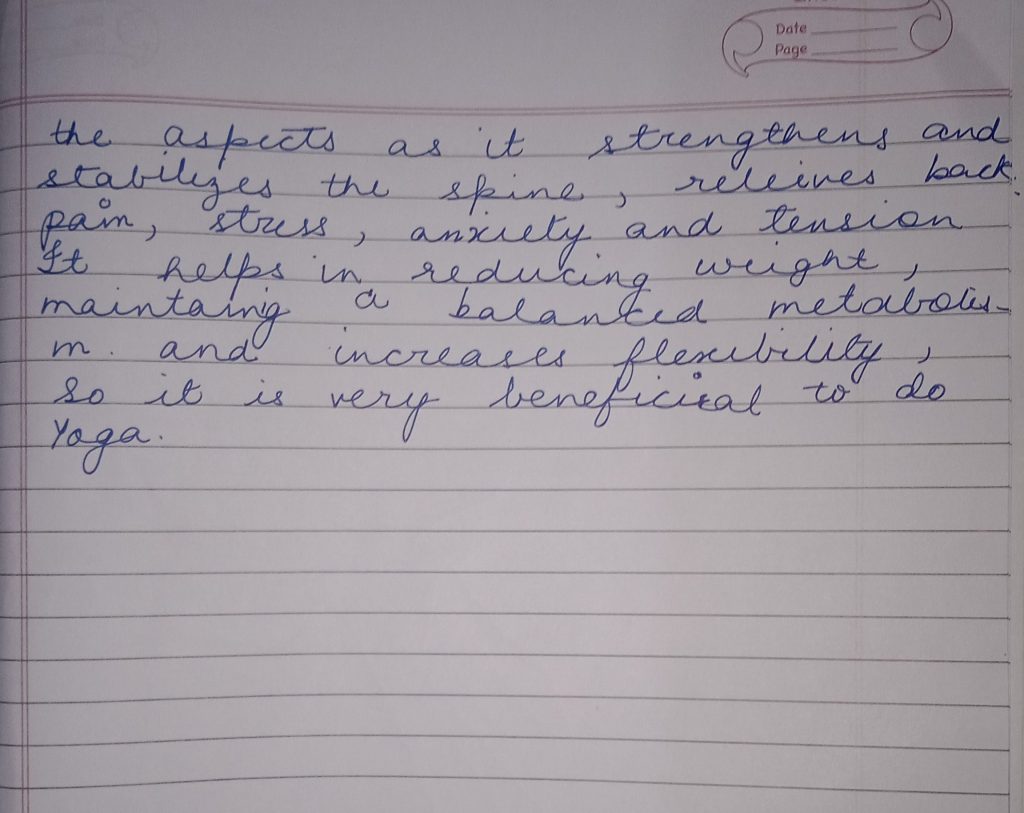 Date
Page
the aspects as it strengthens and
stabilizes the spine, releives back
pain, stress, anxiety and tension
It helps in reducing weight,
maintaing a balanced metabolis-
m. and increases flexibility,
So it is very beneficial to do
Yoga.